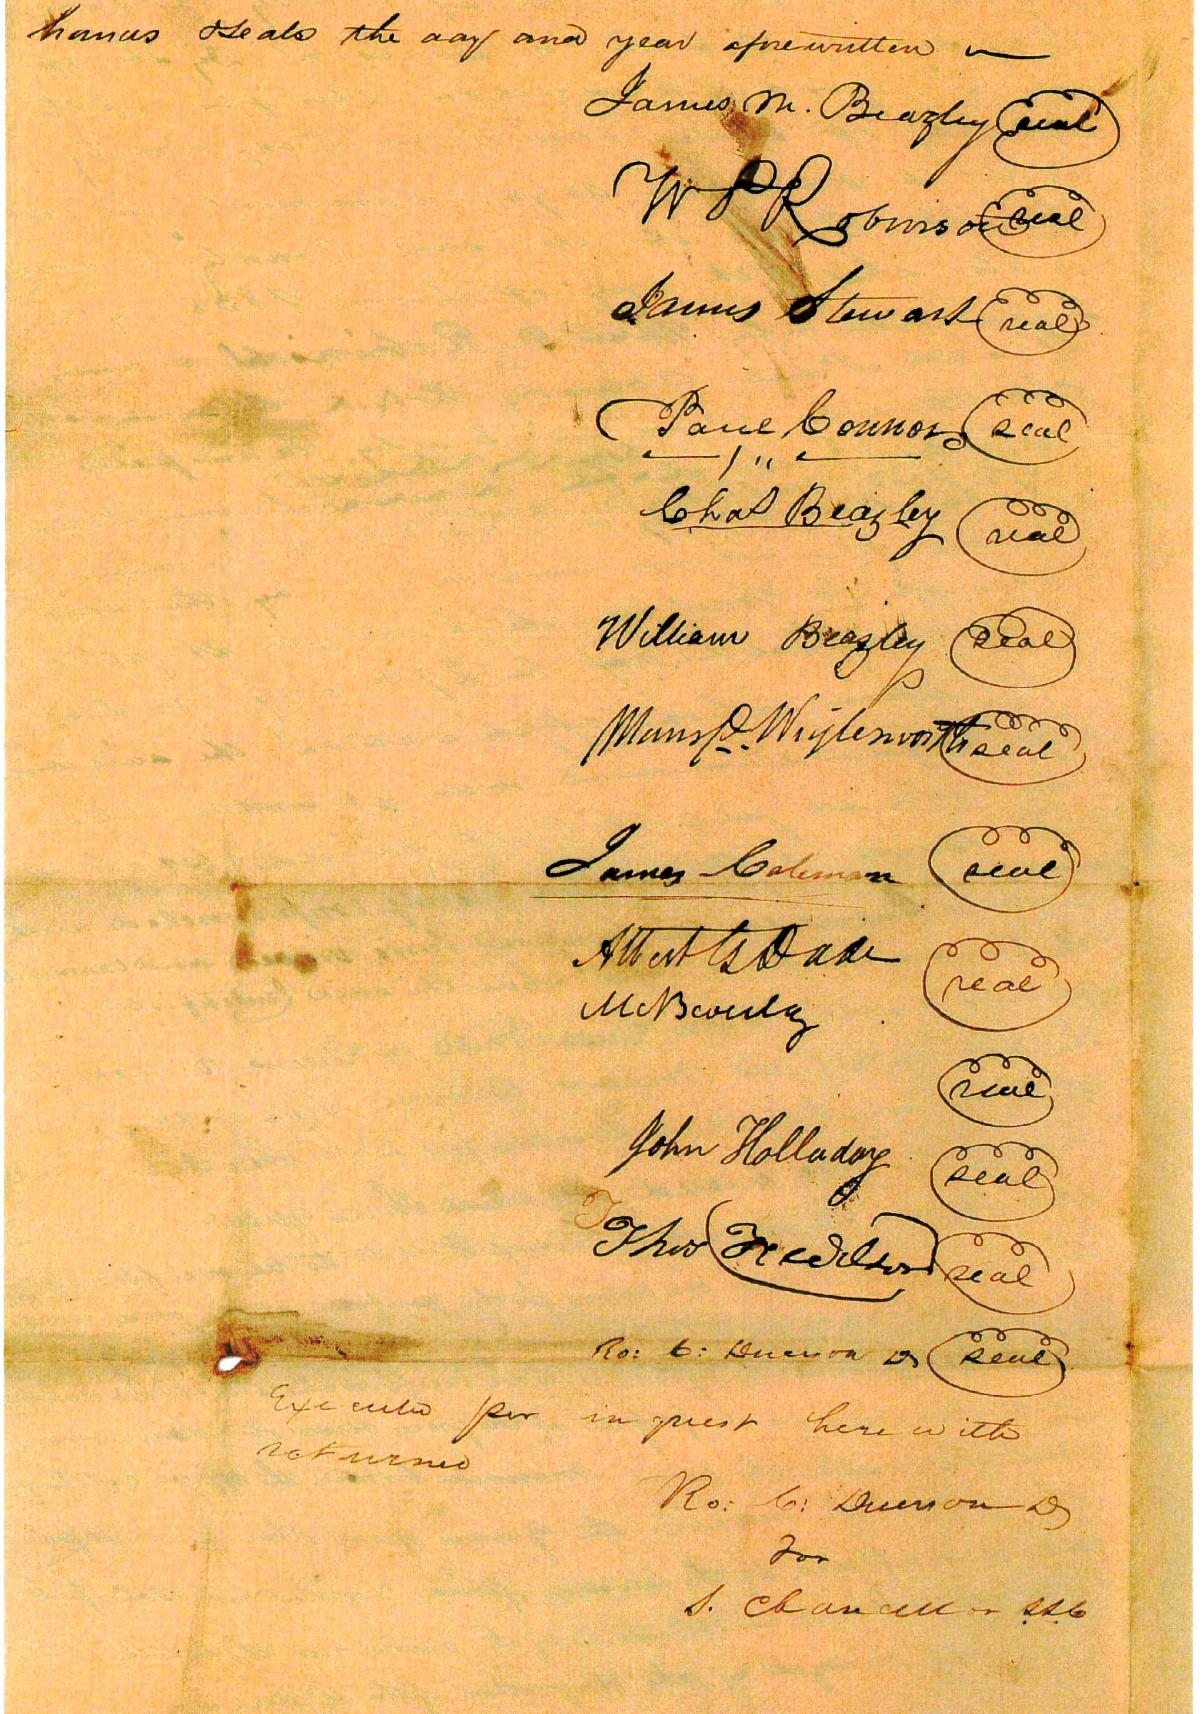 hands & Seals the day and year aforewritten
James M. Beazley seal
W P Robinson seal
James Stewart seal
Paul Connor seal
Chas Beazley seal
William Beazley seal
Mansfd. Wiglesworth seal
James Coleman seal
Albert G Dade seal
Mc Beverley
seal
John Holladay seal
Thos seal
Ro: C: Duerson D seal
Executed per inquest here with
returned
Ro: C: Duerson D
For
S. Chancellor SSC